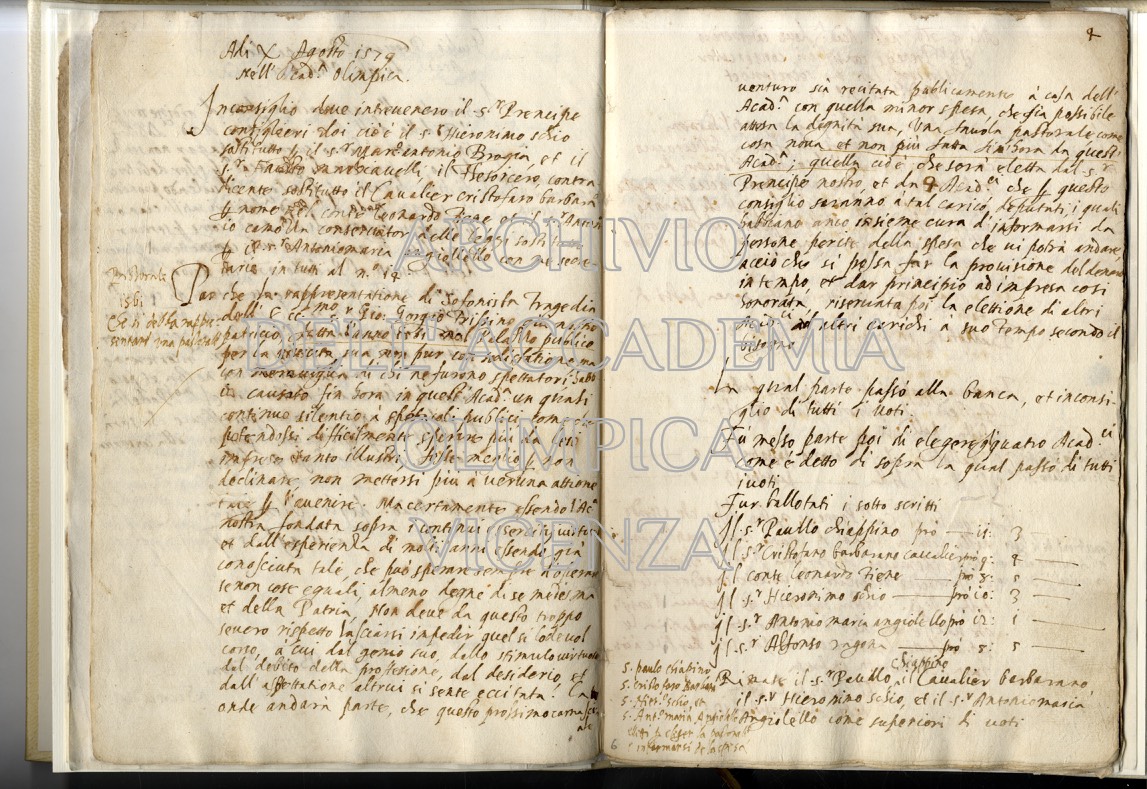 Adi X Agosto 1579
Nell' Acad.ª Olimpica.
In consiglio dove intravenero il s.r Prencipe
consiglieri doi cioè il s.r Hieronimo schio
sostituto p il s.r Marc'antonio Brogia, et il
s.r Fausto il Tesorero, contra
dicente sostituto il Cavalier Cristofaro barbarã
p nome del conte Leonardo Tiene et il s.r Anton
io camolla conservator delle leggi sostituto
p il s.r Antoniomaria Angiolello con me secre
tario in tutti al n.º 14
Pastorale
1561
Par che la rappresentatione di Sofonisba Tragedia
dell' Ecc.mo s.r Gio: Giorgio Trissino
patricio, fatta l'anno 1561 nel palazzo publico
per la riuscita sua non pur con sodisfatione, ma
con meraviglia di chi ne furono spettatori, habb
ia causato fin hora in questa Acad.ª un quasi
continuo silentio à spettacoli publici, come
potendossi difficilmente sperare piu da lei
imprese tanto illustri, fosse meglio p non
declinare, non mettersi piu a veruna attione
tale p l'avenire. Ma certamente essendo l'Ac.ª
nostra fondata sopra i continui essercitii virtuo
et dall'esperienza di molti anni essendo già
conosciuta tale, che può sperare sempre d'operar
se non cose eguali, almeno degne di se medesma
et della Patria, Non deve da questo troppo
severo rispetto lasciarsi impedir quel si lodevol
corso, a cui dal genio suo, dallo stimulo virtuoso
dal debito della professione, dal desiderio, et
dall'aspettatione altrui si sente eccitata. La
onde andarà parte, che questo prossimo carnas
4
venturo sia recitata publicamente a casa dell'
Acad.ª con quella minor spesa, che sia possibile
attesa la dignità sua, Una favola pastorale come
cosa nova et non più fatta sin hora da questa
Acad.ª, quella cioè che sarà eletta dal s.r
Principe nostro, et da 4 Acad.ci che p questo
consiglio saranno a tal carico deputati, i quali
habbiano anco insieme cura d'informarsi da
persone perite della spesa che vi potrà andare
acciò che si possa far la provisione del denaro
in tempo, et dar principio ad impresa così
honorata, riservata poi la elettione di altri
Acad.ci ad altri carichi a suo tempo secondo il
bisogno.
La qual parte passò alla banca, et in consi
glio di tutti i voti.
Fu messo parte poi di elegere quatro Acad.ci
come è detto di sopra la qual passò di tutti
i voti
Fur ballotati i sotto scritti
Il s.r Paullo Chiappino pro — 11: 3
Il s.r Cristofano barbarano cavalier pro 9: 4
Il conte Leonardo Tiene — pro 8: 5
Il s.r Hieronimo schio — pro 10: 3
Il s.r Antonio maria angiolello pro 12: 1
Il s.r Alfonso ragona pro 5: 5
Chiappino
Rimase il s.r Paullo, il Cavalier barbarano,
il s.r Hieronimo schio, et il s.r Antoniomaria
Angiolello come superiori di voti
S. paulo chiapino
S. Cristofaro Barbarã
S. Hier.º schio, et
S. Ant.º maria Angiolello
eletti p eleger la pastorale
e informarsi de la spesa
6
ARCHIVIO
DELL'ACCADEMIA
OLIMPICA
VICENZA